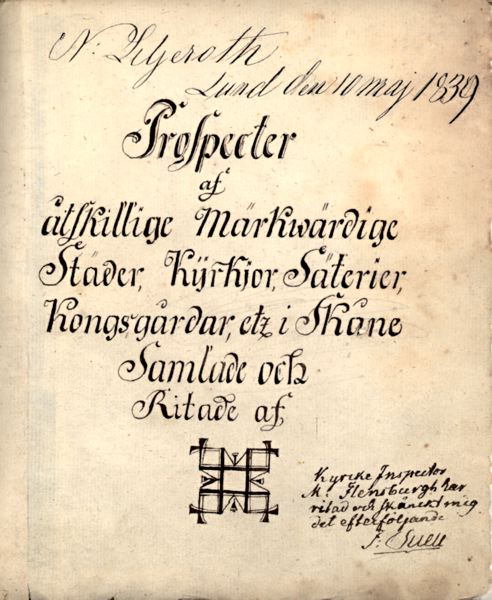 N. Liljeroth
Lund den 10 maj 1839
Prospecter
af
åtskillige Märkwärdige
Städer, Kÿrkjor, Säterier,
Kongsgårdar, etz i Skåne
Samlade och
Ritade af
Kyrcke Inspector
M. Flensburgh har
ritad och skänckt mig
det efterföljande
J: Suell